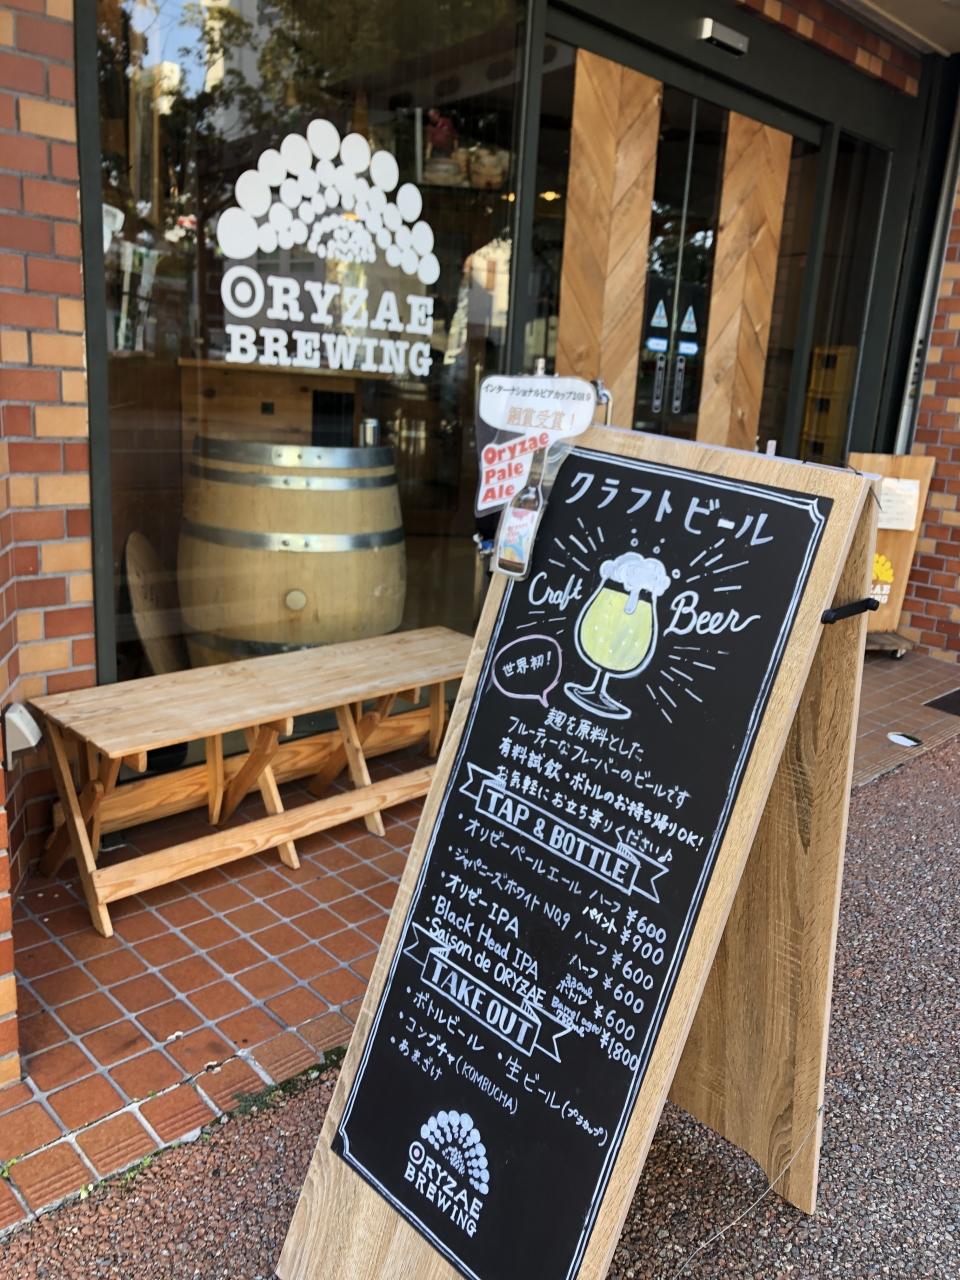 ORYZAE
BREWING
インターナショナルビアカップ2019
銅賞受賞！
Oryzae
Pale
Ale
クラフトビール
Craft
Beer
世界初！
麹を原料とした
フルーティーなフレーバーのビールです
有料試飲・ボトルのお持ち帰りOK!
お気軽にお立ち寄りください♪
TAP & BOTTLE
・オリゼーペールエール ハーフ ¥600
パイント ¥900
・ジャパニーズホワイト NO.9 ハーフ ¥600
・オリゼーIPA ハーフ ¥600
・Black Head IPA 330ml ボトル ¥600
・Saison de ORYZAE Barrel aged 750ml ¥1,800
TAKE OUT
・ボトルビール ・生ビール(プラカップ)
・コンブチャ(KOMBUCHA)
・あまざけ
ORYZAE
BREWING